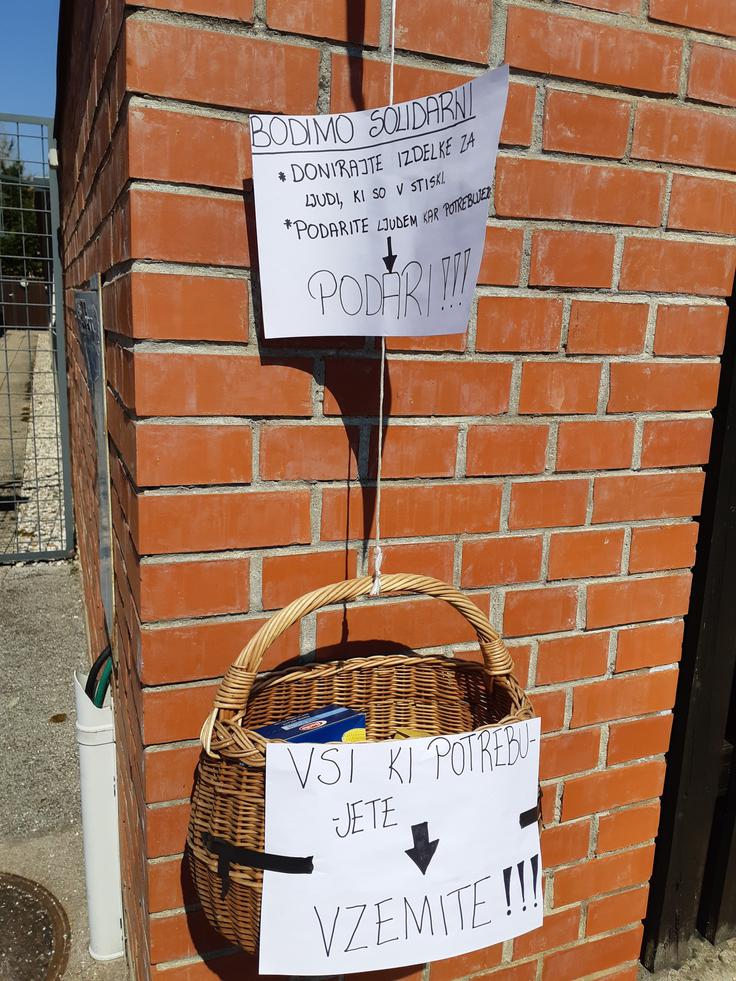 BODIMO SOLIDARNI
* DONIRAJTE IZDELKE ZA
LJUDI, KI SO V STISKI.
* PODARITE LJUDEM KAR POTREBUJEJO
PODARI!!!
VSI KI POTREBU-
-JETE
VZEMITE!!!